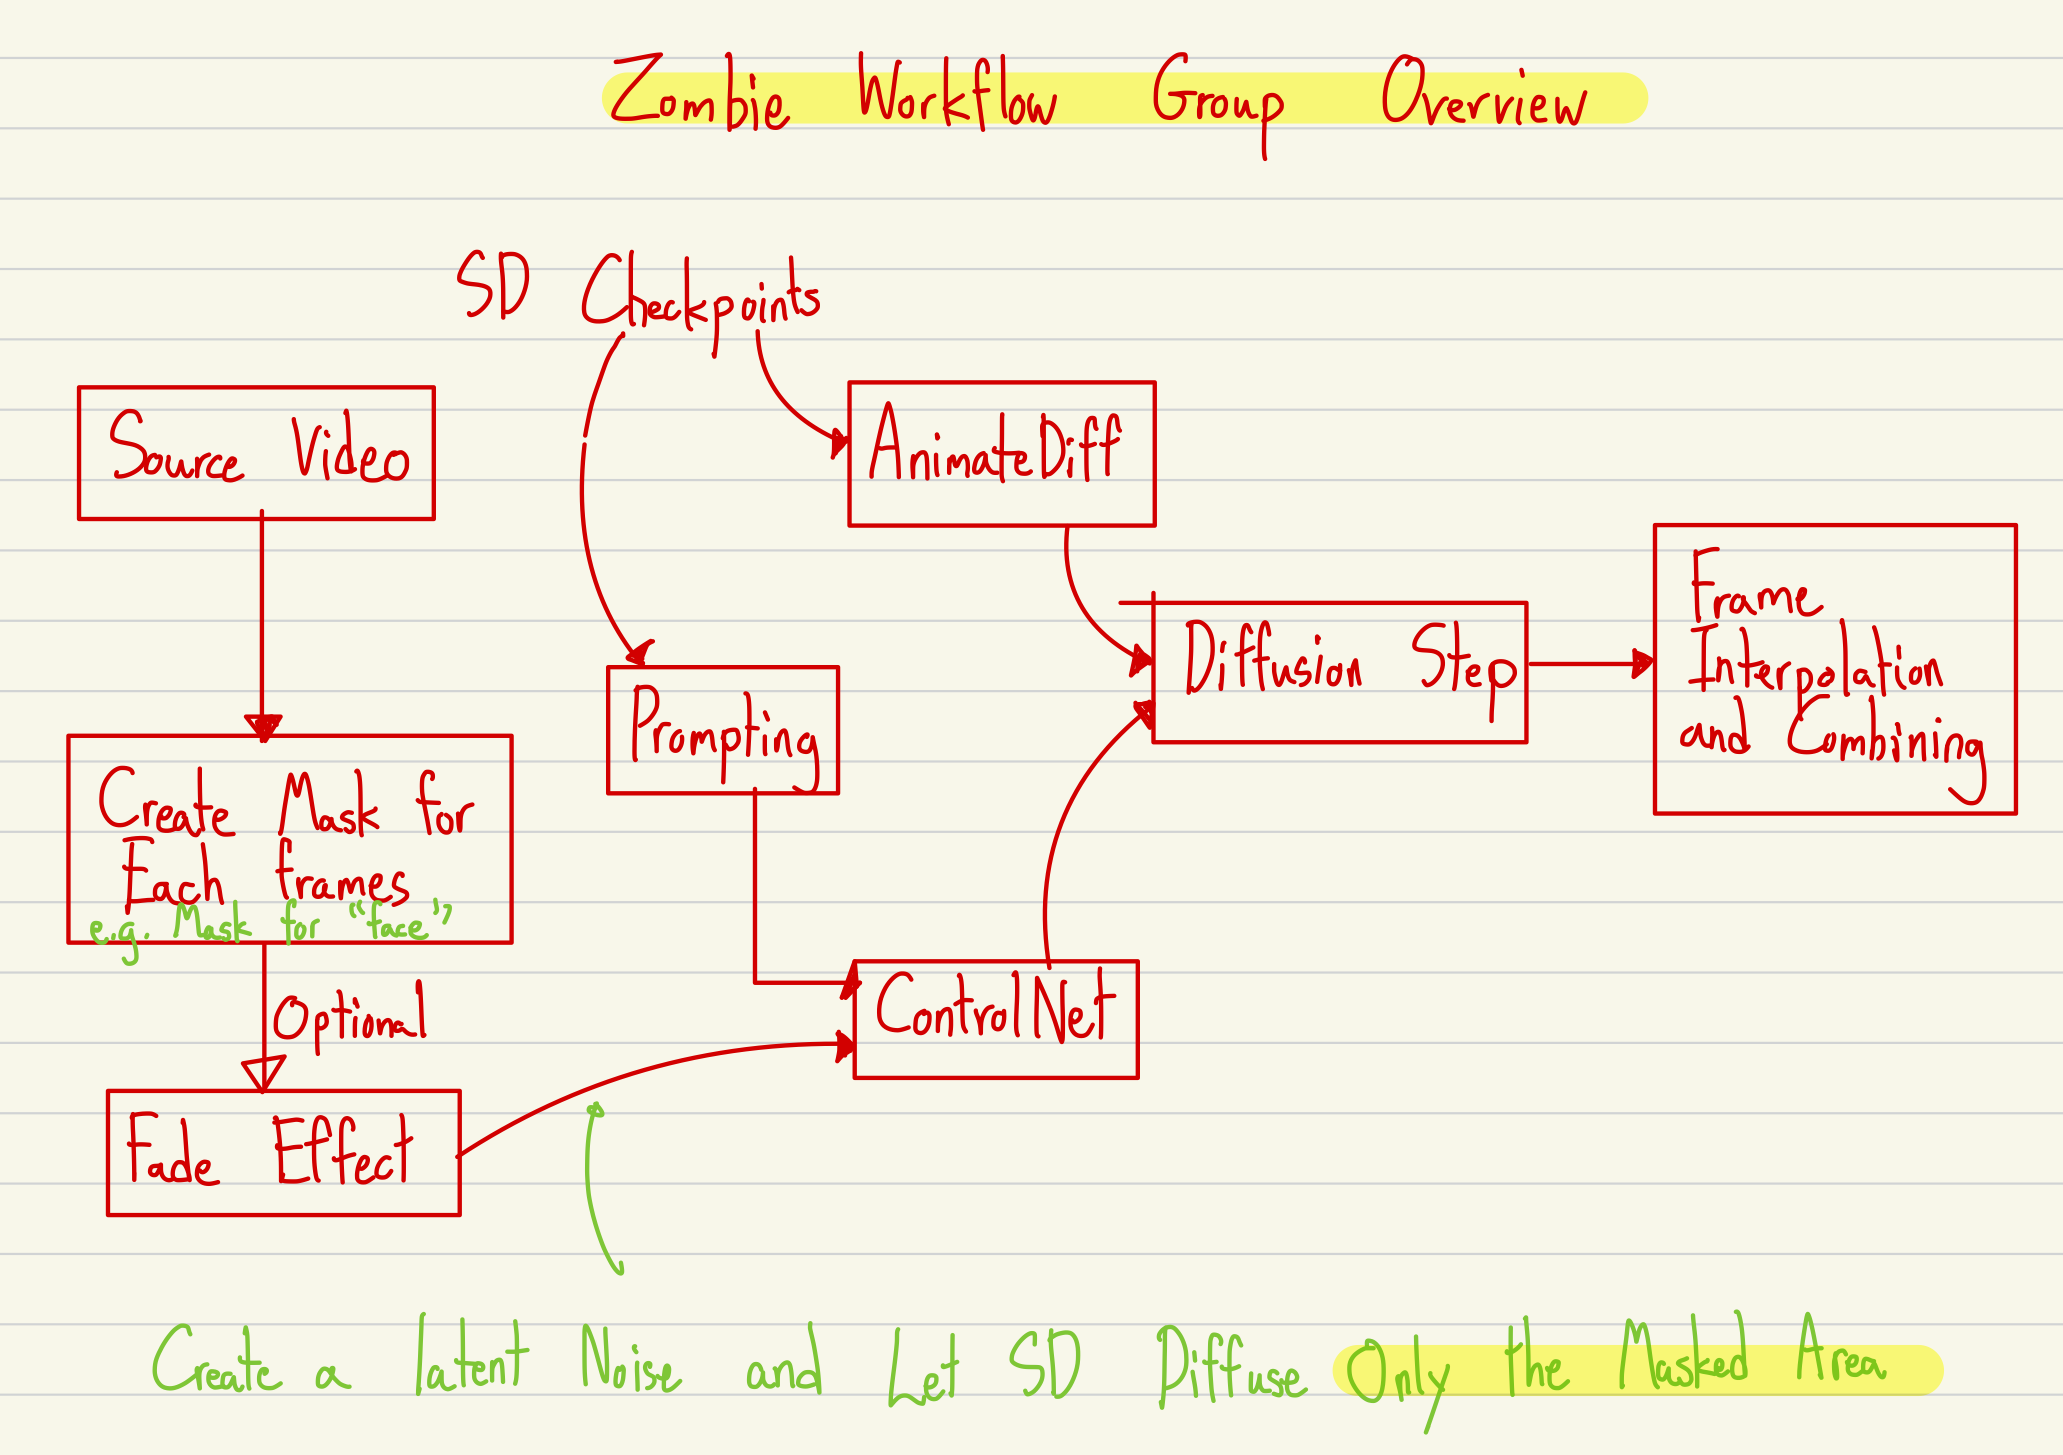 Zombie Workflow Group Overview
SD Checkpoints
Source Video
AnimateDiff
Frame
Interpolation
and Combining
Diffusion Step
Prompting
Create Mask for
Each frames
e.g. Mask for "face"
Optional
ControlNet
Fade Effect
Create a latent Noise and Let SD Diffuse Only the Masked Area